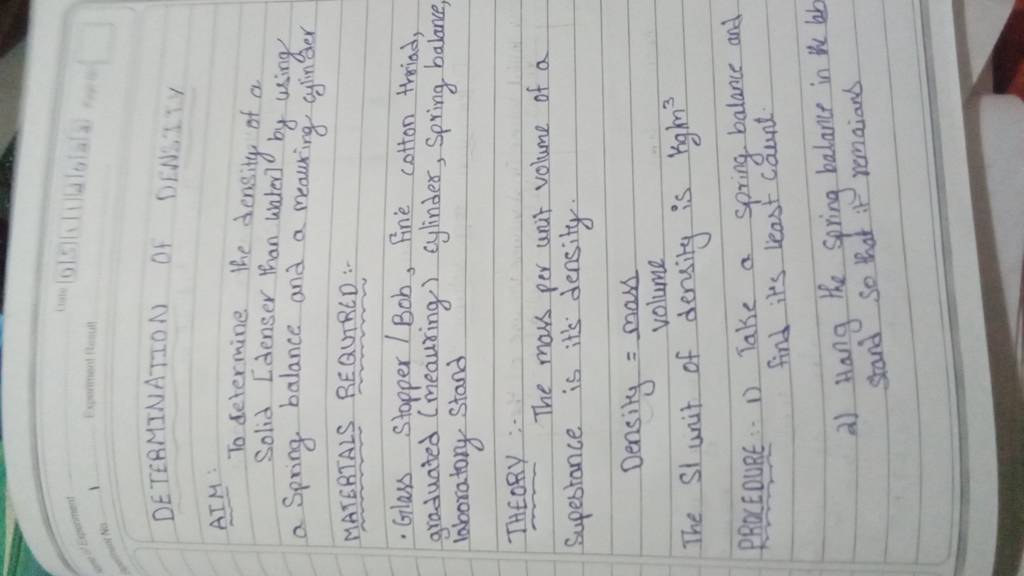 Experiment Result
DETERMINATION OF DENSITY
AIM:
To determine the density of a
Solid [denser than water] by using
a Spring balance and a meauring cylinder
MATERIALS REQUIRED:-
• Glass Stopper / Bob, fine cotton thriad,
graduated (meauring) cylinder, spring balance,
laboratory Stand
THEORY :-
The mass per unit volume of a
Supestance is it's density.
Density = mass
volume
The SI unit of density is kg/m³
PROCEDURE :- 1) Take a spring balance and
find its least count.
2) Hang the spring balance in the lab
stand so that it remaions